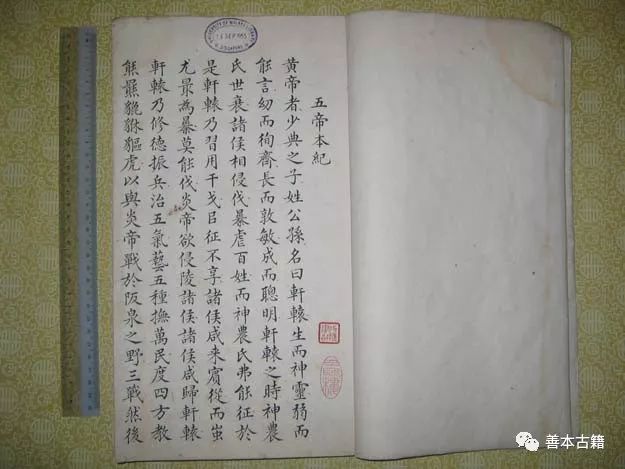 五帝本紀
黃帝者少典之子姓公孫名曰軒轅生而神靈弱而
能言幼而徇齊長而敦敏成而聰明軒轅之時神農
氏世衰諸侯相侵伐暴虐百姓而神農氏弗能征於
是軒轅乃習用干戈㠯征不享諸侯咸来賓從而蚩
尤最為暴莫能伐炎帝欲侵陵諸侯諸侯咸歸軒轅
軒轅乃修德振兵治五氣藝五種撫萬民度四方教
熊羆貔貅貙虎以與炎帝戰於阪泉之野三戰然後
善本古籍